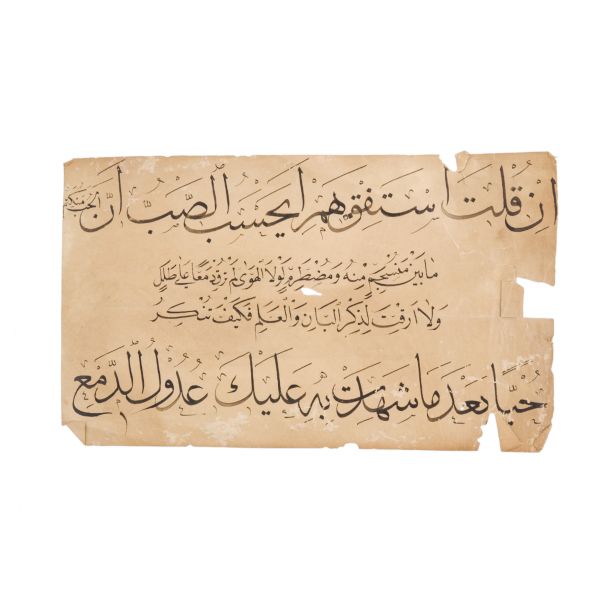 ان قلت استفق يهم ايحسب الصب ان الحب منكتم
ما بين منسجم منه ومضطرم لولا الهوى لم ترق دمعا على طلل
ولا ارقت لذكر البان والعلم فكيف تنكر
حبا بعد ما شهدت به عليك عدول الدمع